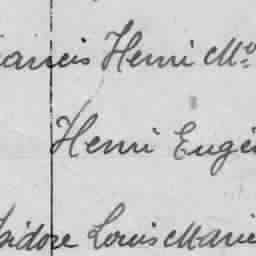 Francis Henri M
Henri Eugè
Isidore Louis Marie